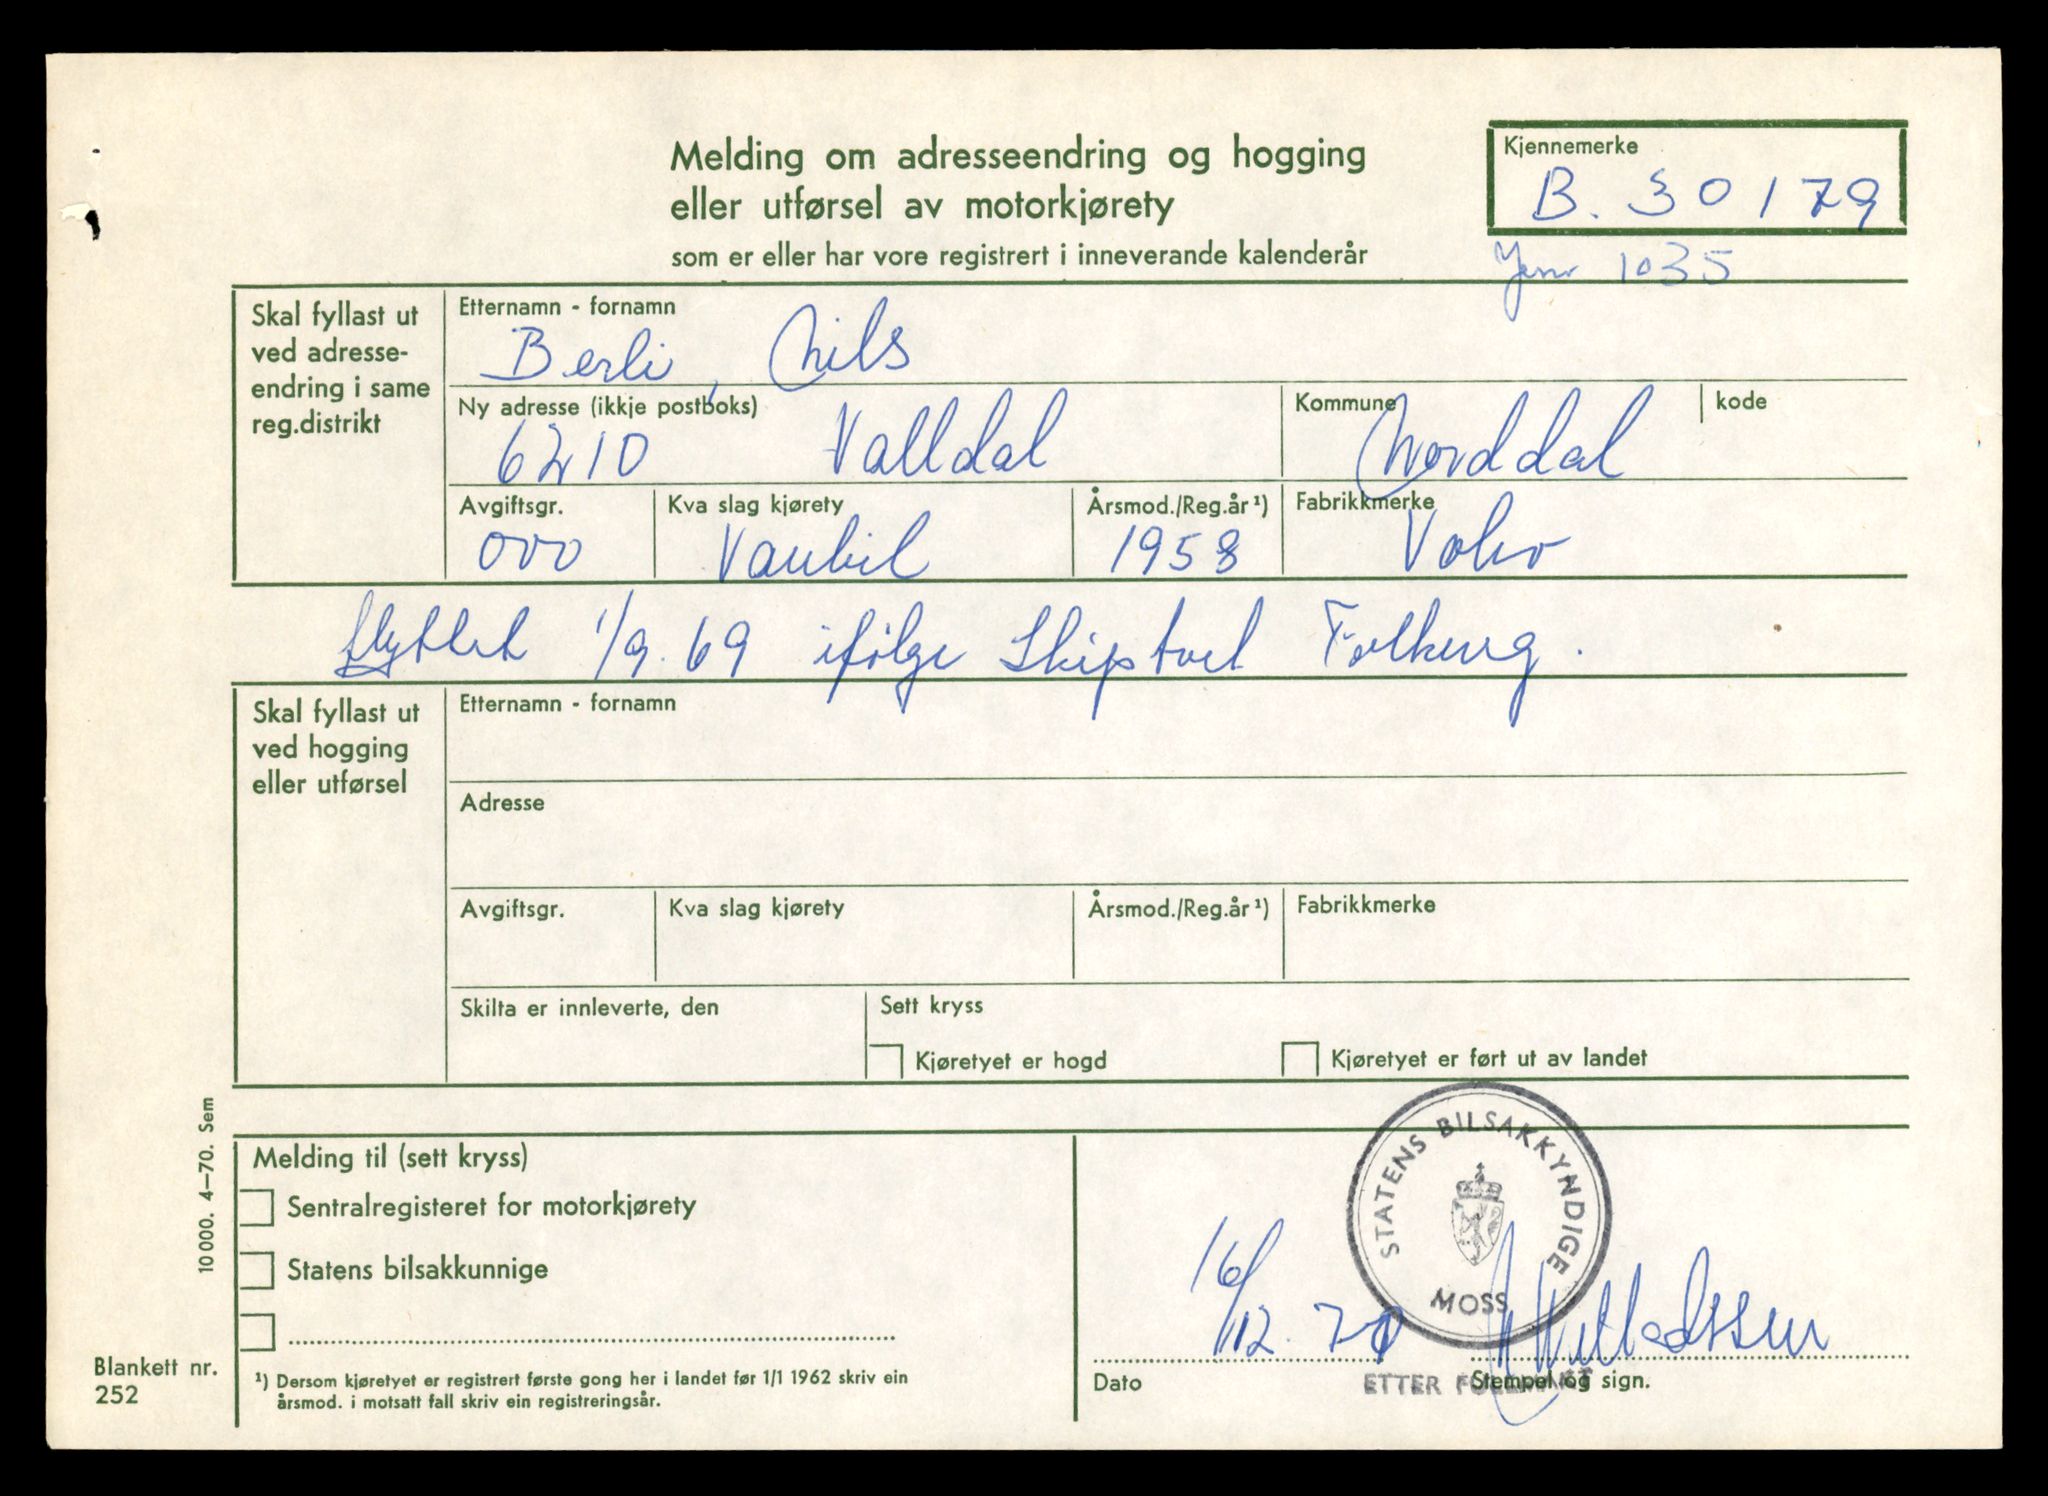 Melding om adresseendring og hogging
eller utførsel av motorkjørety
som er eller har vore registrert i inneverande kalenderår
Kjennemerke
B. 30179
1035
Skal fyllast ut
ved adresse-
endring i same
reg.distrikt
Etternamn - fornamn
Berli, Nils
Ny adresse (ikkje postboks)
6210 Valldal
Kommune
Norddal
kode
Avgiftsgr.
000
Kva slag kjørety
Varebil
Årsmod./Reg.år ¹)
1958
Fabrikkmerke
Volvo
flyttet 1/9.69 ifølge Skiptvet Folkereg.
Skal fyllast ut
ved hogging
eller utførsel
Etternamn - fornamn
Adresse
Avgiftsgr.
Kva slag kjørety
Årsmod./Reg.år ¹)
Fabrikkmerke
Skilta er innleverte, den
Sett kryss
Kjøretyet er hogd
Kjøretyet er ført ut av landet
10 000. 4–70. Sem
Melding til (sett kryss)
Sentralregisteret for motorkjørety
Statens bilsakkunnige
STATENS BILSAKKYNDIGE
MOSS
16/12.70
Dato
ETTER FULLMAKT
Stempel og sign.
Blankett nr.
252
¹) Dersom kjøretyet er registrert første gong her i landet før 1/1 1962 skriv ein
årsmod. i motsatt fall skriv ein registreringsår.